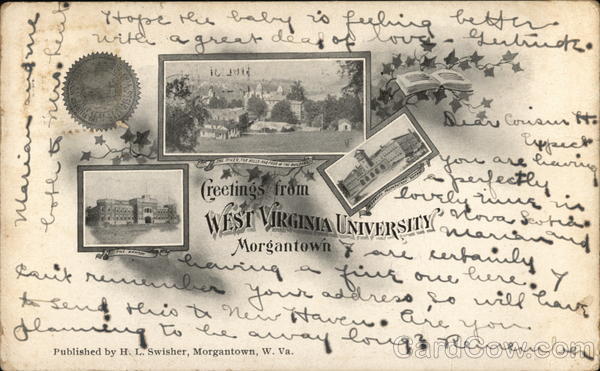 Hope the baby is feeling better
with a great deal of love - Gertrude.
THE RIVER, THE HILLS AND FOUR OF THE BUILDINGS
Greetings from
WEST VIRGINIA UNIVERSITY
Morgantown
THE ARMORY
Dear Cousin H.
Expect
you are having
a perfectly
lovely time in
Nova Scotia
Marian and
I are certainly
having a fine one here. I
can't remember your address so will have
to send this to New Haven. Are you
planning to be away long?
Marian and me
both to Mrs.
Published by H. L. Swisher, Morgantown, W. Va.
CardCow.com